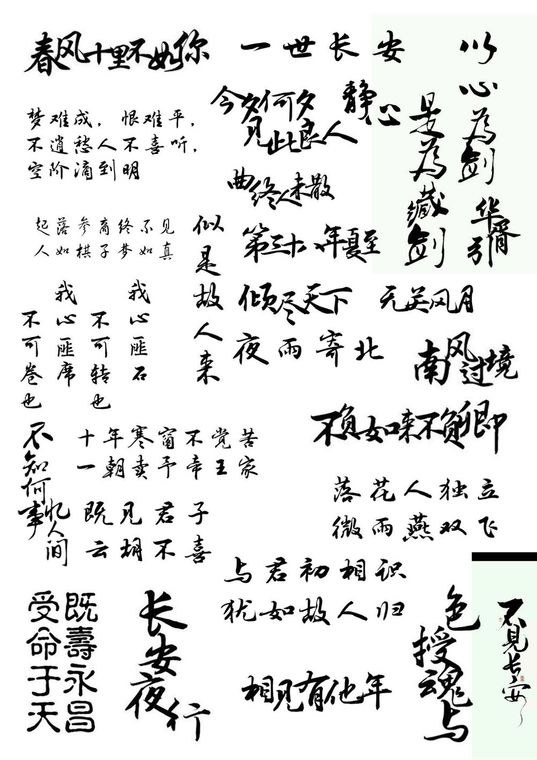 春风十里不如你
一世长安
以心為劍
是為藏劍
华胥引
今夕何夕
见此良人
静心
梦难成，恨难平，
不道愁人不喜听，
空阶滴到明
曲终人未散
起落参商终不见
人如棋子梦如真
似是故人来
第三十八年夏至
我心匪石
不可转也
我心匪席
不可卷也
倾尽天下
无关风月
夜雨寄北
南风过境
不负如来不负卿
不知何事
忆人间
十年寒窗不觉苦
一朝卖予帝王家
既见君子
云胡不喜
落花人独立
微雨燕双飞
与君初相识
犹如故人归
受命于天
既壽永昌
长安夜行
相见有他年
色授魂与
不見長安